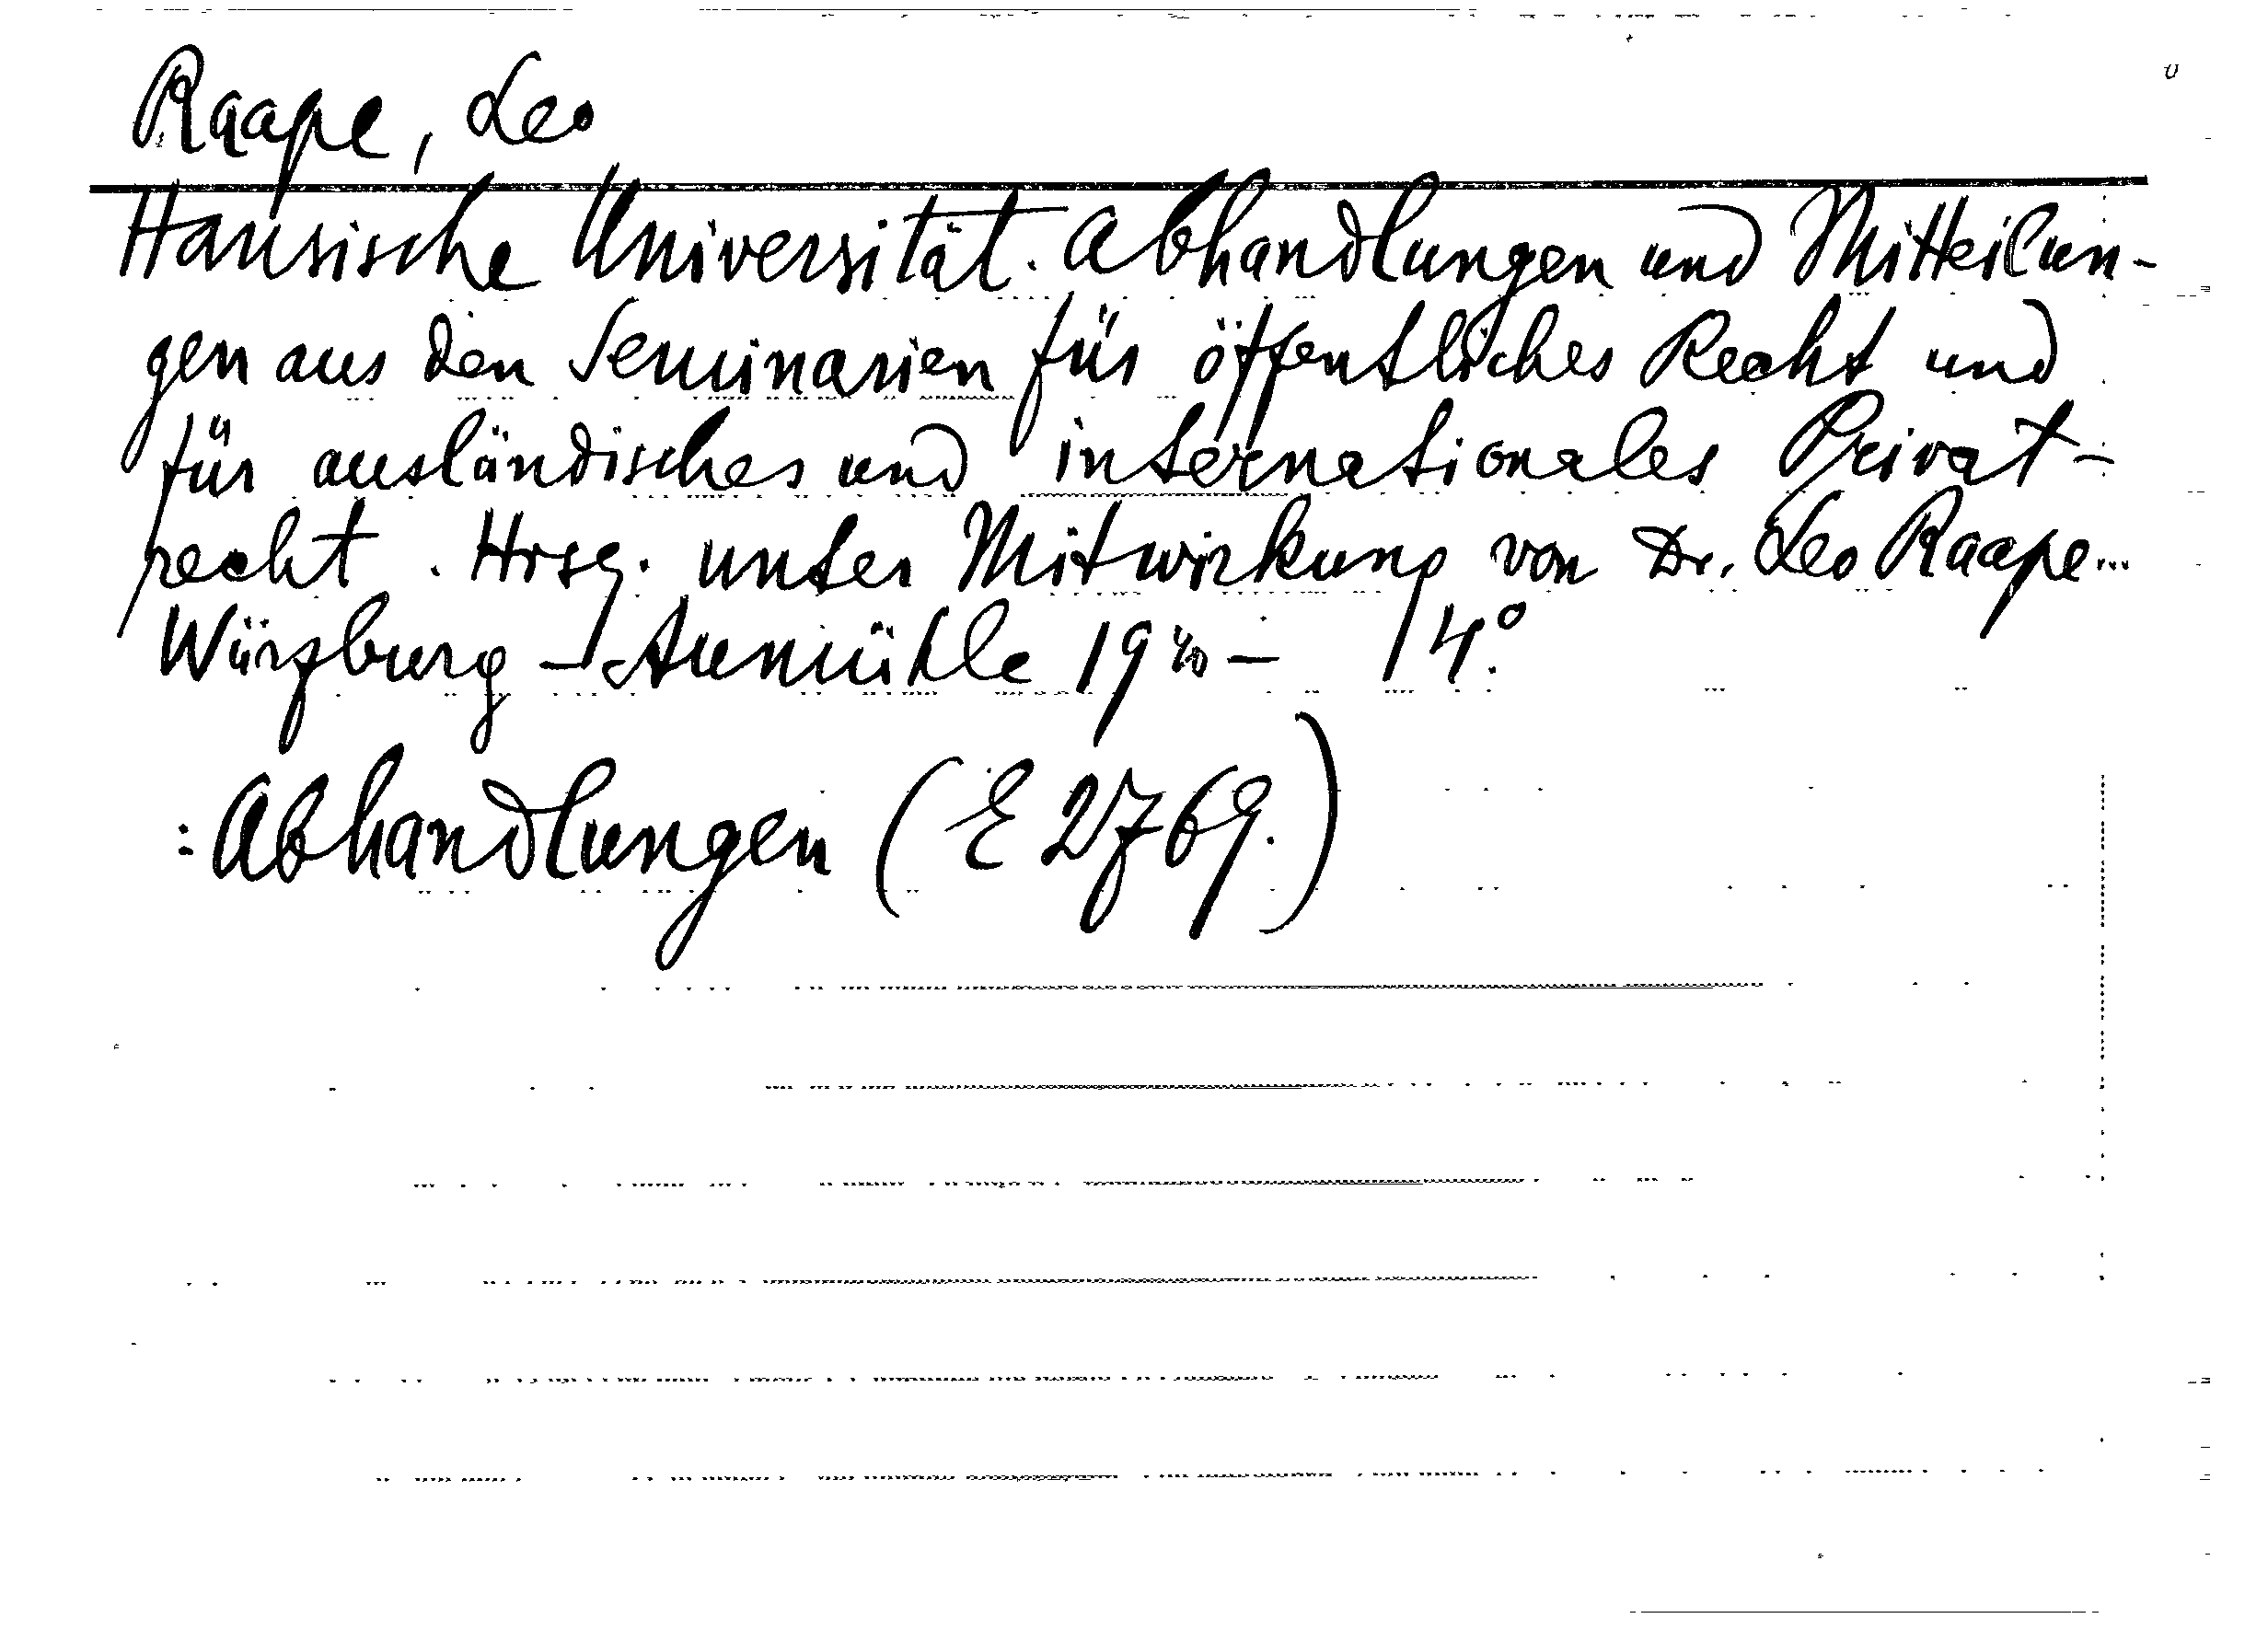 Raape, Leo
Hansische Universität. Abhandlungen und Mitteilun-
gen aus den Seminarien für öffentliches Recht und
für ausländisches und internationales Privat-
recht. Hrsg. unter Mitwirkung von Dr. Leo Raape...
Würzburg-Aumühle 1940- 4°.
: Abhandlungen (E 2769.)